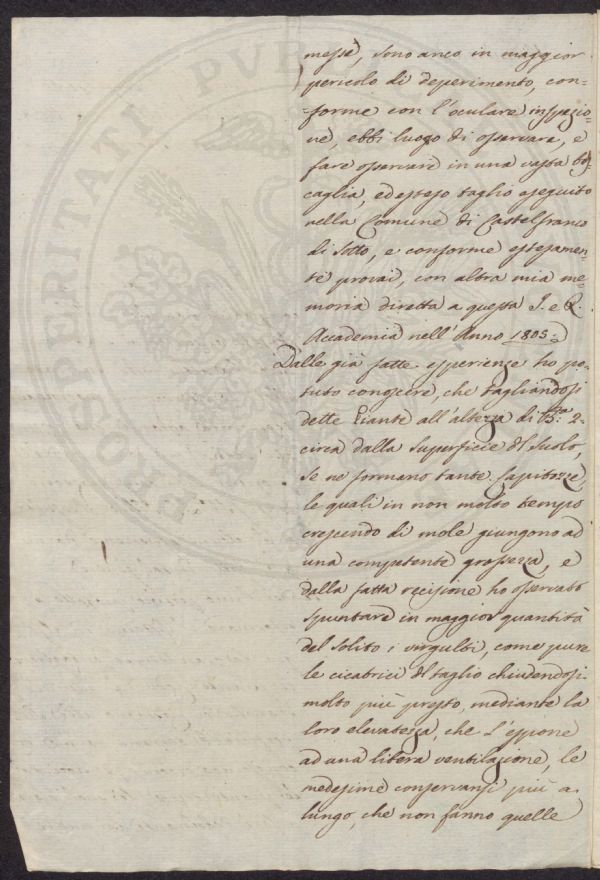 messe, sono anco in maggior
pericolo di deperimento, con=
=forme con l'oculare inspezio=
ne, ebbi luogo di osservare, e
fare osservare in una vasta bo=
caglia, ed esteso taglio eseguito
nella Comune di Castelfranco
di Sotto, e conforme estesamen=
te provai, con altra mia me=
moria diretta a questa I. e R.
Accademia nell'Anno 1805:
Dalle già fatte esperienze ho po=
tuto conoscere, che tagliandosi
dette Piante all'altezza di B.a 2.
circa dalla superficie del suolo,
se ne formano tante Capitozze,
le quali in non molto tempo
crescendo di mole giungono ad
una competente grossezza, e
dalla fatta recisione ho osservato
spuntare in maggior quantità
del solito i virgulti, come pure
le cicatrici del taglio chiudendosi
molto più presto, mediante la
loro elevatezza, che l'espone
ad una libera ventilazione, le
medesime conservansi più a
lungo, che non fanno quelle
PROSPERITATI PVB